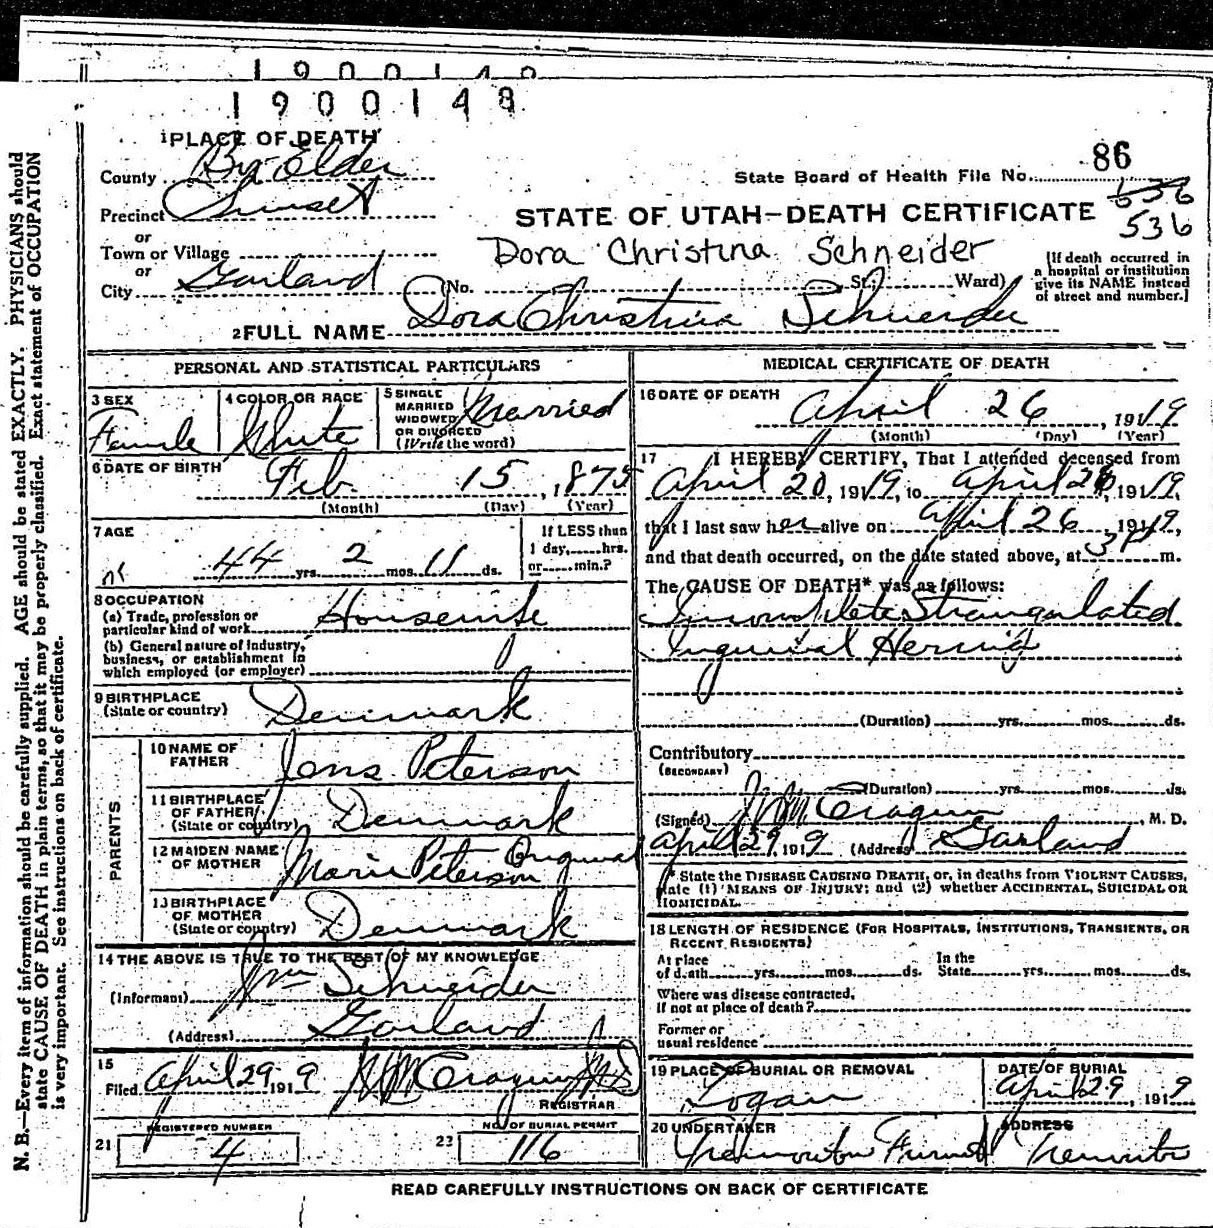 1900148
1900148
1 PLACE OF DEATH
County Box Elder
State Board of Health File No. 86
Precinct Sunset
536
STATE OF UTAH—DEATH CERTIFICATE
536
or
Town or Village
Dora Christina Schneider
or
City Garland (No. St.; Ward)
[If death occurred in
a hospital or institution
give its NAME instead
of street and number.]
2 FULL NAME Dora Christina Schneider
PERSONAL AND STATISTICAL PARTICULARS
3 SEX
Female
4 COLOR OR RACE
White
5 SINGLE
MARRIED
WIDOWED
OR DIVORCED
(Write the word)
Married
6 DATE OF BIRTH
Feb. 15, 1875
(Month) (Day) (Year)
7 AGE
44 yrs. 2 mos. 11 ds.
If LESS than
1 day, hrs.
or min.?
8 OCCUPATION
(a) Trade, profession or
particular kind of work Housewife
(b) General nature of industry,
business, or establishment in
which employed (or employer)
9 BIRTHPLACE
(State or country) Denmark
PARENTS
10 NAME OF
FATHER Jens Peterson
11 BIRTHPLACE
OF FATHER
(State or country) Denmark
12 MAIDEN NAME
OF MOTHER Marie Peterson
13 BIRTHPLACE
OF MOTHER
(State or country) Denmark
14 THE ABOVE IS TRUE TO THE BEST OF MY KNOWLEDGE
(Informant) Wm Schneider
(Address) Garland
15
Filed April 29 1919
REGISTRAR
REGISTERED NUMBER
21 4
NO. OF BURIAL PERMIT
22 116
MEDICAL CERTIFICATE OF DEATH
16 DATE OF DEATH
April 26, 1919
(Month) (Day) (Year)
17 I HEREBY CERTIFY, That I attended deceased from
April 20, 1919, to April 26, 1919,
that I last saw her alive on April 26, 1919,
and that death occurred, on the date stated above, at 3 P m.
The CAUSE OF DEATH* was as follows:
Incomplete Strangulated
Inguinal Hernia
(Duration) yrs. mos. ds.
Contributory
(SECONDARY)
(Duration) yrs. mos. ds.
(Signed) , M. D.
April 29, 1919 (Address Garland
* State the DISEASE CAUSING DEATH, or, in deaths from VIOLENT CAUSES,
state (1) MEANS OF INJURY; and (2) whether ACCIDENTAL, SUICIDAL OR
HOMICIDAL.
18 LENGTH OF RESIDENCE (FOR HOSPITALS, INSTITUTIONS, TRANSIENTS, OR
RECENT RESIDENTS)
At place
of death yrs. mos. ds.
In the
State yrs. mos. ds.
Where was disease contracted,
if not at place of death?
Former or
usual residence
19 PLACE OF BURIAL OR REMOVAL
Logan
DATE OF BURIAL
April 29, 1919
20 UNDERTAKER
Tremonton
ADDRESS
READ CAREFULLY INSTRUCTIONS ON BACK OF CERTIFICATE
N. B.—Every item of information should be carefully supplied. AGE should be stated EXACTLY. PHYSICIANS should
state CAUSE OF DEATH in plain terms, so that it may be properly classified. Exact statement of OCCUPATION
is very important. See instructions on back of certificate.